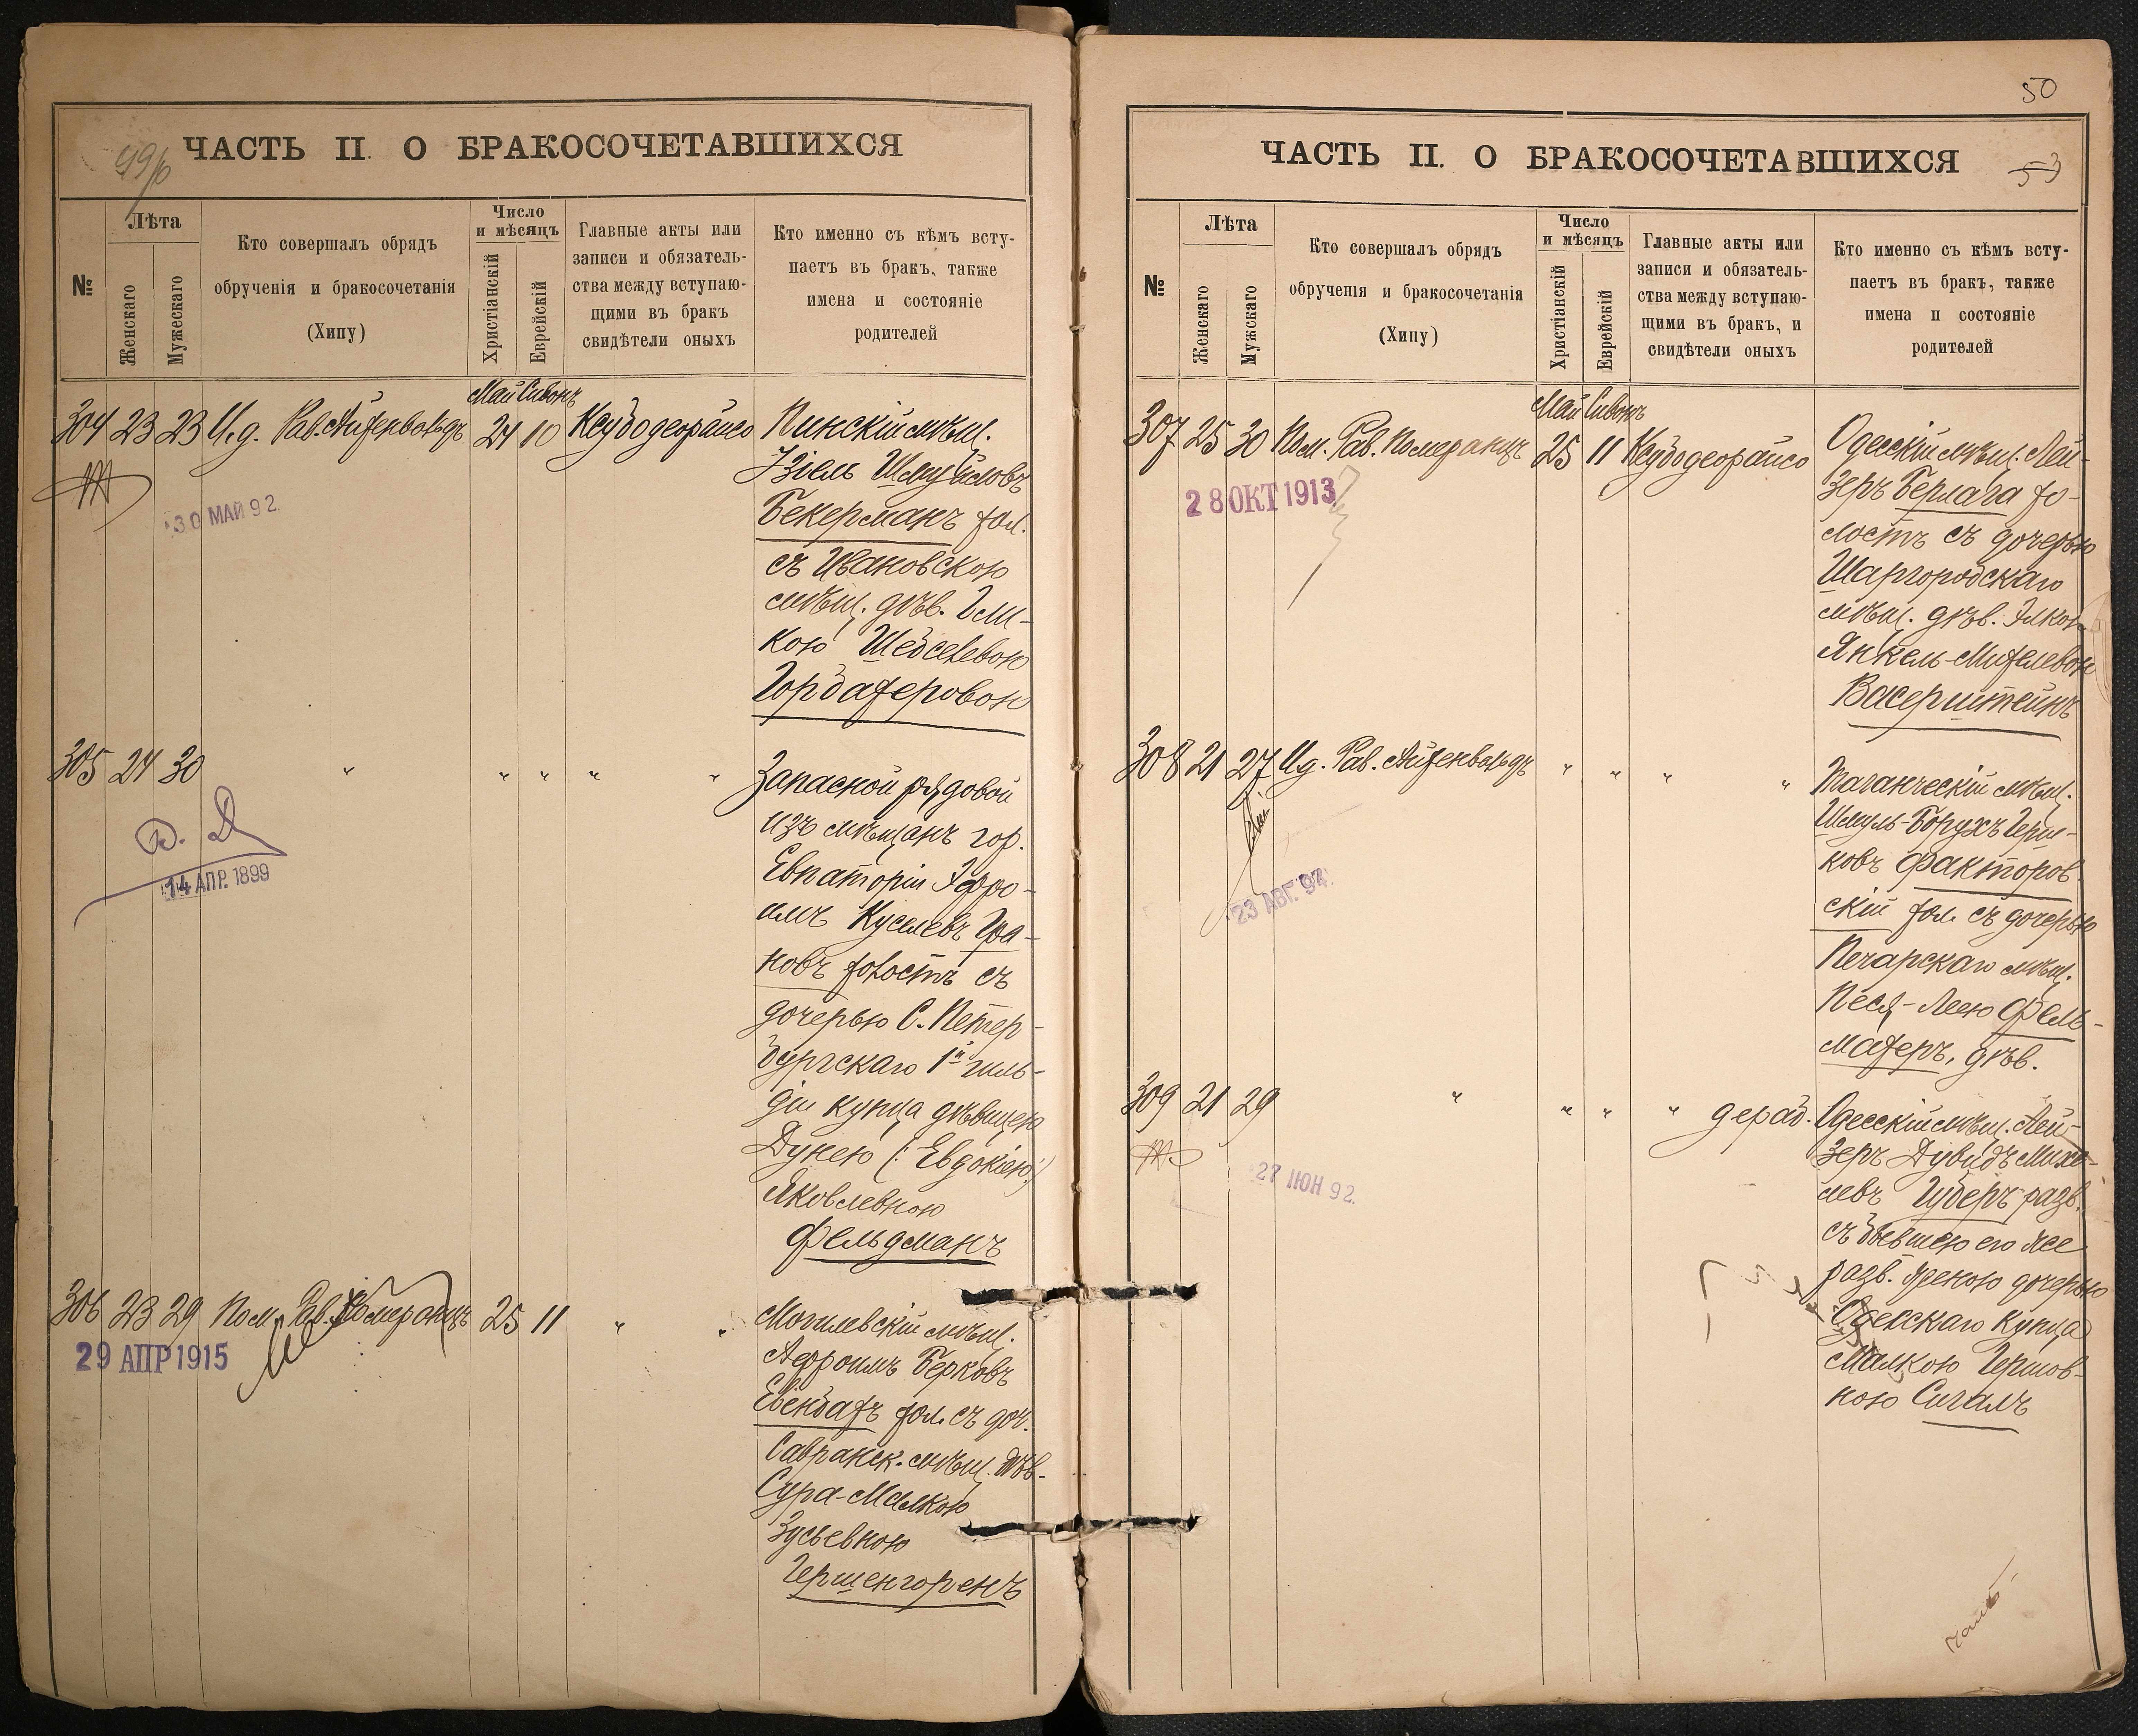 99/б
ЧАСТЬ II. О БРАКОСОЧЕТАВШИХСЯ
№
Лѣта
Женскаго
Мужескаго
Кто совершалъ обрядъ
обрученія и бракосочетанія
(Хипу)
Число
и мѣсяцъ
Христіанскій
Еврейскій
Главные акты или
записи и обязатель-
ства между вступаю-
щими въ бракъ
свидѣтели оныхъ
Кто именно съ кѣмъ всту-
паетъ въ бракъ, также
имена и состояніе
родителей
Май Сивонъ
304 23 23 И.д. Рав. Айзенвальдъ 24 10 Ксубодеорайсо Пинскій мѣщ.
Iзіель Шмуйловъ
Бекерманъ хол.
съ Ивановскою
мѣщ. дѣв.
кою
30 МАЙ 92
305 24 30 " " " " " Запасной рядовой
изъ мѣщанъ гор.
Евпаторіи Эфро-
имъ Куселевъ Гра-
новъ холостъ съ
дочерью С. Петер-
бургскаго 1й гиль-
діи купца дѣвицею
Дунею (: Евдокіею :)
Яковлевною
Фельдманъ
14 АПР. 1899
306 23 29 Пом. Рав. Померанцъ 25 11 " " Могилевскій мѣщ.
Афроимъ Берковъ
хол. съ доч.
Савранск. мѣщ. дѣв.
Сура-Малкою
Зусьевною
Гершенгоренъ
29 АПР 1915
50
53
ЧАСТЬ II. О БРАКОСОЧЕТАВШИХСЯ
№
Лѣта
Женскаго
Мужскаго
Кто совершалъ обрядъ
обрученія и бракосочетанія
(Хипу)
Число
и мѣсяцъ
Христіанскій
Еврейскій
Главные акты или
записи и обязатель-
ства между вступаю-
щими въ бракъ, и
свидѣтели оныхъ
Кто именно съ кѣмъ всту-
паетъ въ бракъ, также
имена и состояніе
родителей
Май Сивонъ
307 25 30 Пом. Рав. Померанцъ 25 11 Ксубодеорайсо Одесскій мѣщ. Лей-
зеръ Берлага хо-
лостъ съ дочерью
Шаргородскаго
мѣщ. дѣв. Элкою
Янкель-
Васерштейнъ
28 ОКТ 1913
308 21 27 И.д. Рав. Айзенвальдъ " " " " Таганческій мѣщ.
Шмуль-Борухъ Герш-
ковъ Факторов-
скій хол. съ дочерью
Печарскаго мѣщ.
Песя-Леею Фель-
махеръ, дѣв.
23 АВГ. 94
309 21 29 " " " " дерад. Одесскій мѣщ. Лей-
зеръ Дувидъ Михе-
левъ Губеръ разв.
съ бывшею его же
разв. женою дочерью
Одесскаго купца
Малкою Гершов-
ною Сигалъ
27 ІЮН 92.